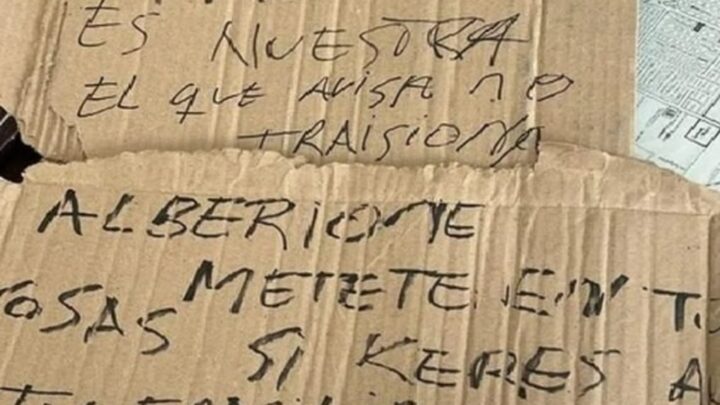 ES NUESTRA
EL QUE AVISA NO
TRAISIONA
ALBERIONE
METETE EN T
OSAS SI KERES A